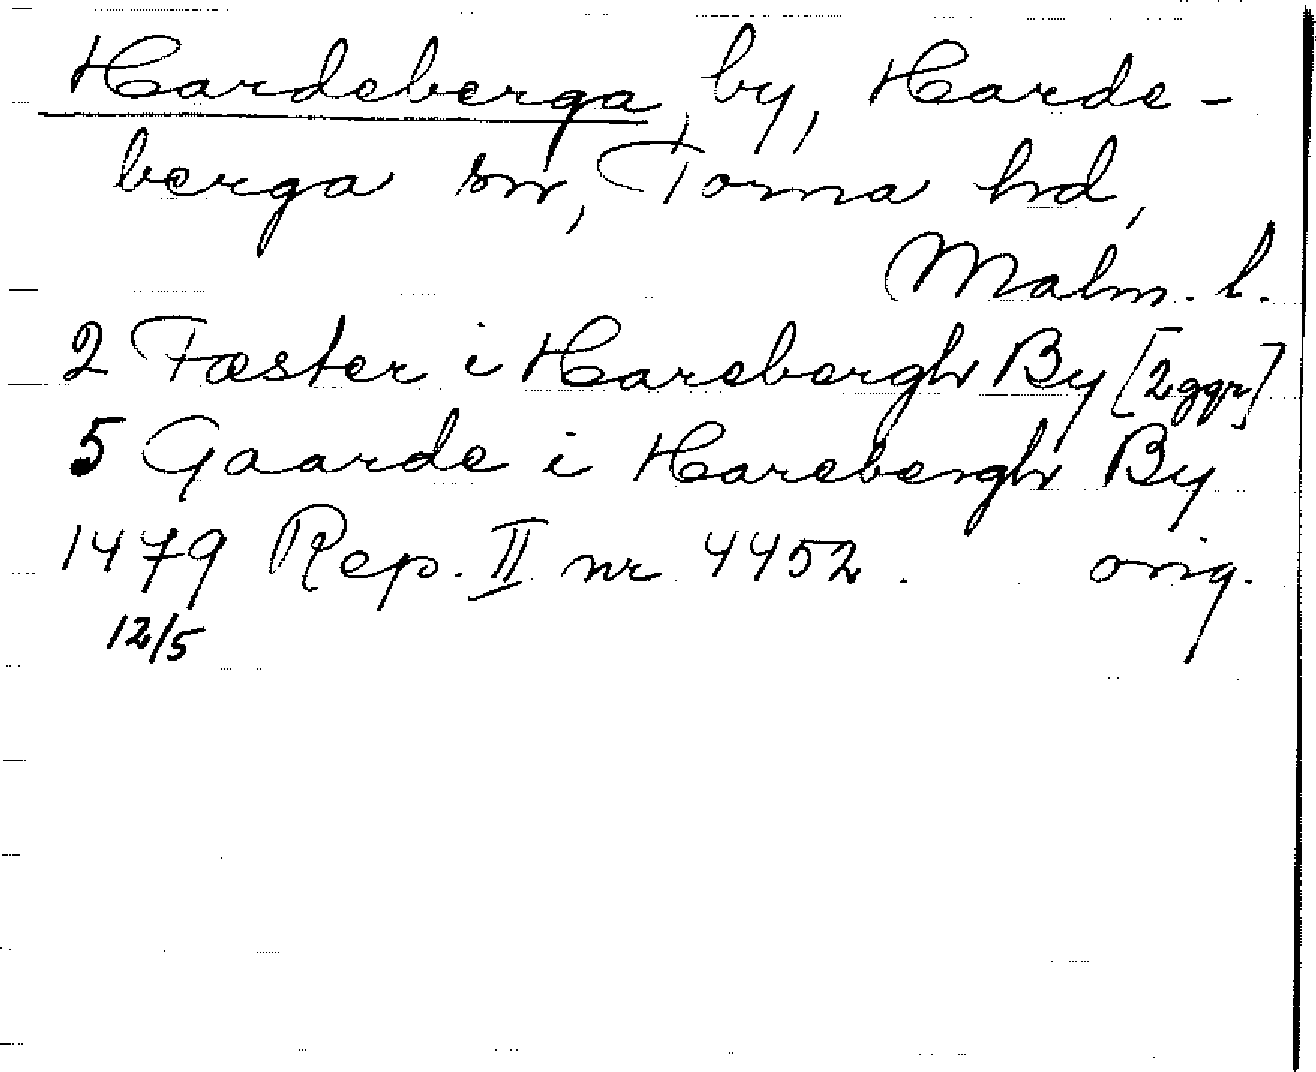 Hardeberga by, Harde-
berga sn, Torna hd,
Malm. l.
2 Fæster i Harebergh By [2 ggr]
5 Gaarde i Harebergh By
1479 Rep. II nr 4452. orig.
12/5